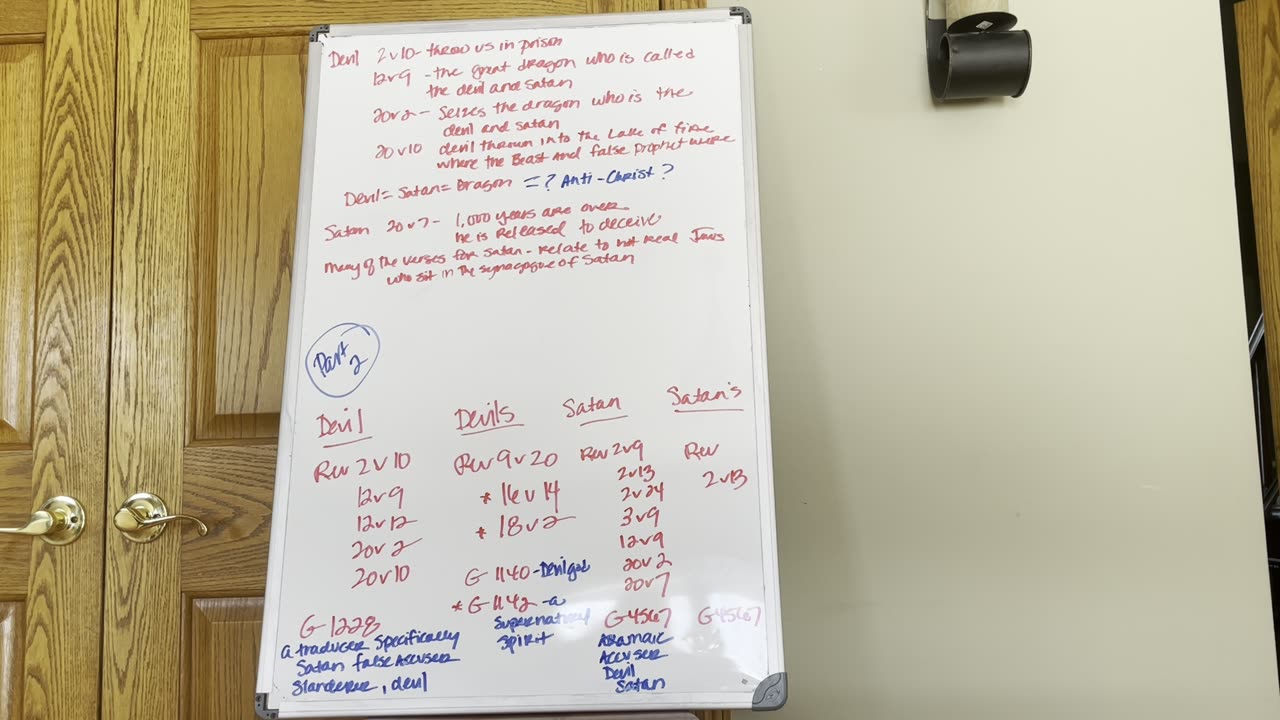 Devil 2v10- throw us in prison
12v9 -the great dragon who is called
the devil and satan
20v2- Seizes the dragon who is the
devil and satan
20v10 devil thrown into the Lake of fire
where the Beast and false prophet were
Devil = Satan = Dragon =? Anti-Christ?
Satan 20v7- 1,000 years are over
he is released to deceive
many of the verses for satan - relate to not real Jews
who sit in the synagogue of Satan
Part 2
Devil Devils Satan Satan's
Rev 2v10 Rev 9v20 Rev 2v9 Rev
12v9 * 16v14 2v13 2v13
12v12 * 18v2 2v24
20v2 3v9
20v10 12v9
20v2
20v7
G-1140 -Devil god
* G-1142 -a
supernatural
spirit
G-1228 G4567 G4567
a traducer specifically
Satan false accuser
slanderer, devil
Aramaic
Accuser
Devil
Satan